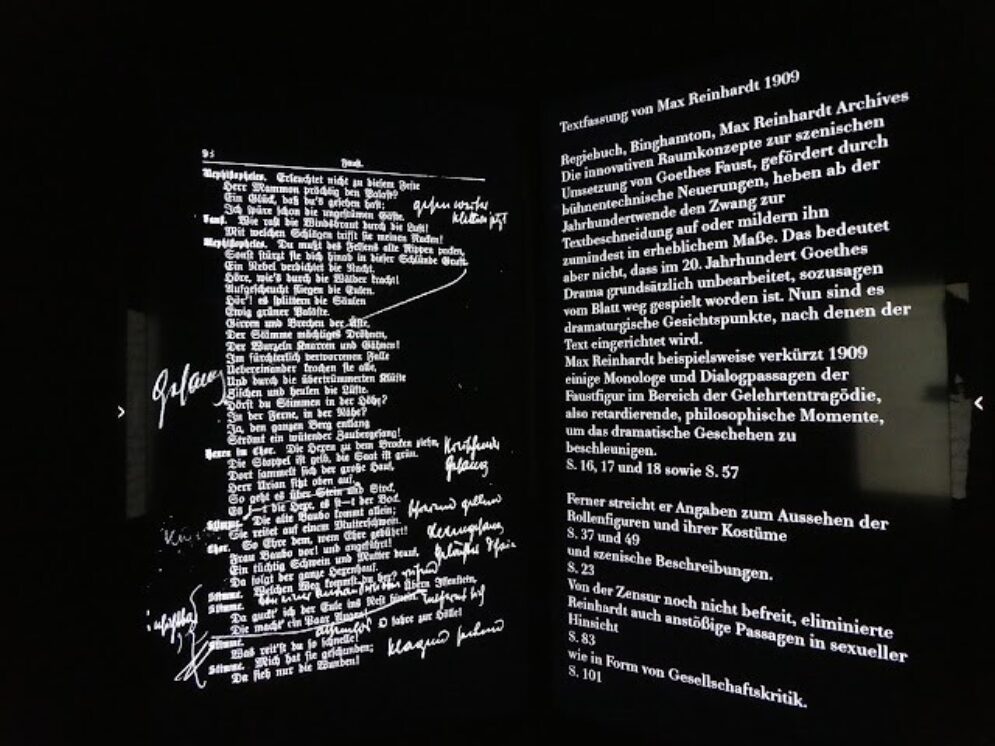 95
Faust.
Mephistopheles. Erleuchtet nicht zu diesem Feste
Herr Mammon prächtig den Palast?
Ein Glück, daß du's gesehen hast;
Ich spüre schon die ungestümen Gäste.
Faust. Wie rast die Windsbraut durch die Luft!
Mit welchen Schlägen trifft sie meinen Nacken!
Mephistopheles. Du mußt des Felsens alte Rippen packen,
Sonst stürzt sie dich hinab in dieser Schlünde Gruft.
Ein Nebel verdichtet die Nacht.
Höre, wie's durch die Wälder kracht!
Aufgescheucht fliegen die Eulen.
Hör'! es splittern die Säulen
Ewig grüner Paläste.
Girren und Brechen der Äste,
Der Stämme mächtiges Dröhnen,
Der Wurzeln Knarren und Gähnen!
Im fürchterlich verworrenen Falle
Uebereinander krachen sie alle,
Und durch die übertrümmerten Klüfte
Zischen und heulen die Lüfte.
Hörst du Stimmen in der Höhe?
In der Ferne, in der Nähe?
Ja, den ganzen Berg entlang
Strömt ein wütender Zaubergesang!
Gesang
Hexen im Chor. Die Hexen zu dem Brocken ziehn,
Die Stoppel ist gelb, die Saat ist grün.
Dort sammelt sich der große Hauf,
Herr Urian sitzt oben auf.
Gesang
So geht es über Stein und Stock,
Es f—t die Hexe, es st—t der Bock.
Stimme. Die alte Baubo kommt allein;
Sie reitet auf einem Mutterschwein.
Chor. So Ehre dem, wem Ehre gebührt!
Frau Baubo vor! und angeführt!
Ein tüchtig Schwein und Mutter drauf,
Da folgt der ganze Hexenhauf.
Stimme. Welchen Weg kommst du her?
Stimme. Übern Ilsenstein,
Da guckt' ich der Eule ins Nest hinein.
Die macht' ein Paar Augen!
O fahre zur Hölle!
Stimme.
Was reit'st du so schnelle!
Stimme. Mich hat sie geschunden;
Da sieh nur die Wunden!
klagend
Textfassung von Max Reinhardt 1909
Regiebuch, Binghamton, Max Reinhardt Archives
Die innovativen Raumkonzepte zur szenischen
Umsetzung von Goethes Faust, gefördert durch
bühnentechnische Neuerungen, heben ab der
Jahrhundertwende den Zwang zur
Textbeschneidung auf oder mildern ihn
zumindest in erheblichem Maße. Das bedeutet
aber nicht, dass im 20. Jahrhundert Goethes
Drama grundsätzlich unbearbeitet, sozusagen
vom Blatt weg gespielt worden ist. Nun sind es
dramaturgische Gesichtspunkte, nach denen der
Text eingerichtet wird.
Max Reinhardt beispielsweise verkürzt 1909
einige Monologe und Dialogpassagen der
Faustfigur im Bereich der Gelehrtentragödie,
also retardierende, philosophische Momente,
um das dramatische Geschehen zu
beschleunigen.
S. 16, 17 und 18 sowie S. 57
Ferner streicht er Angaben zum Aussehen der
Rollenfiguren und ihrer Kostüme
S. 37 und 49
und szenische Beschreibungen.
S. 23
Von der Zensur noch nicht befreit, eliminierte
Reinhardt auch anstößige Passagen in sexueller
Hinsicht
S. 83
wie in Form von Gesellschaftskritik.
S. 101